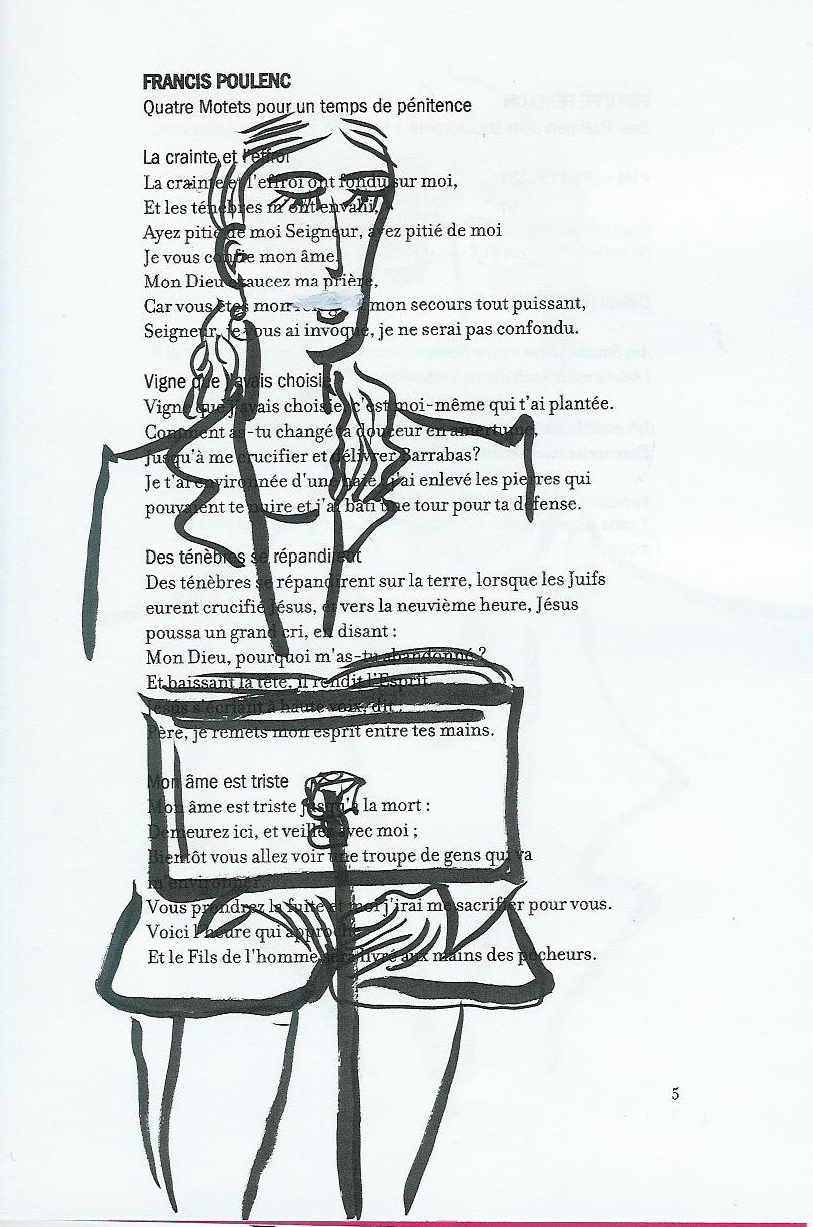 FRANCIS POULENC
Quatre Motets pour un temps de pénitence
La crainte et l'effroi
La crainte et l'effroi ont fondu sur moi,
Et les ténèbres m'ont envahi,
Ayez pitié de moi Seigneur, ayez pitié de moi
Je vous confie mon âme,
Mon Dieu exaucez ma prière,
Car vous êtes mon mon secours tout puissant,
Seigneur, je vous ai invoqué, je ne serai pas confondu.
Vigne que j'avais choisie
Vigne que j'avais choisie, c'est moi-même qui t'ai plantée.
Comment as-tu changé ta douceur en amertume,
Jusqu'à me crucifier et délivrer Barrabas?
Je t'ai environnée d'une haie, j'ai enlevé les pierres qui
pouvaient te nuire et j'ai bâti une tour pour ta défense.
Des ténèbres se répandirent
Des ténèbres se répandirent sur la terre, lorsque les Juifs
eurent crucifié Jésus, et vers la neuvième heure, Jésus
poussa un grand cri, en disant :
Mon Dieu, pourquoi m'as-tu abandonné ?
Et baissant la tête, il rendit l'Esprit.
Jésus s'écriant à haute voix, dit :
Père, je remets mon esprit entre tes mains.
Mon âme est triste
Mon âme est triste jusqu'à la mort :
Demeurez ici, et veillez avec moi ;
Bientôt vous allez voir une troupe de gens qui va
m'environner,
Vous prendrez la fuite et moi j'irai me sacrifier pour vous.
Voici l'heure qui approche
Et le Fils de l'homme sera livré aux mains des pécheurs.
5